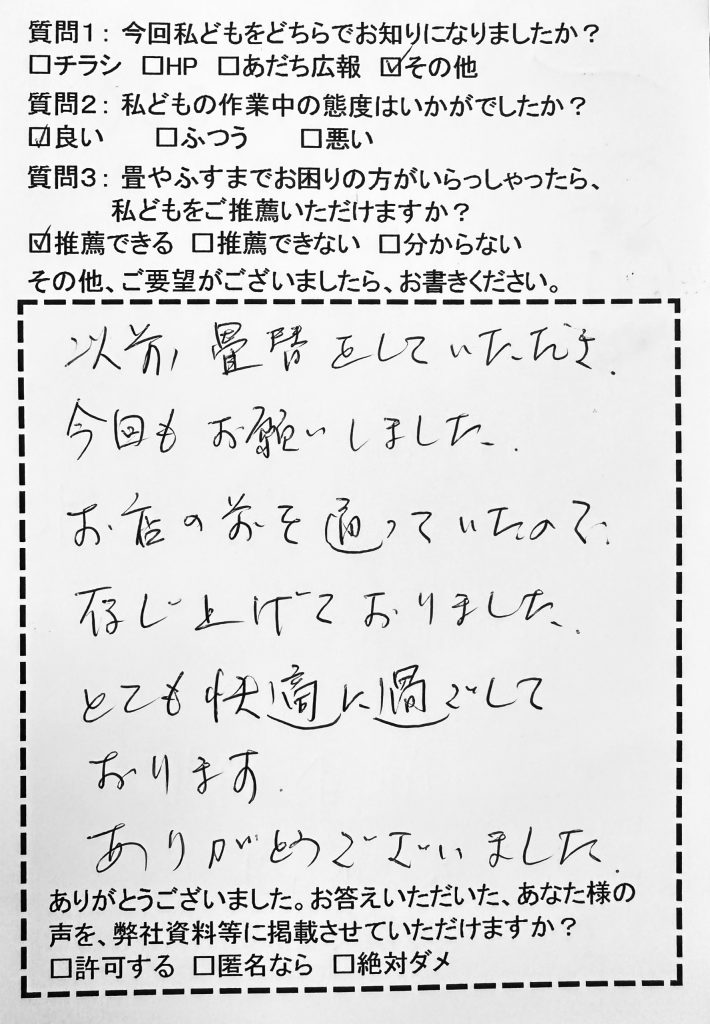 質問1： 今回私どもをどちらでお知りになりましたか？
□チラシ □HP □あだち広報 ☑その他
質問2： 私どもの作業中の態度はいかがでしたか？
☑良い □ふつう □悪い
質問3： 畳やふすまでお困りの方がいらっしゃったら、
私どもをご推薦いただけますか？
☑推薦できる □推薦できない □分からない
その他、ご要望がございましたら、お書きください。
以前、畳替をしていただき、
今回もお願いしました。
お店の前を通っていたので、
存じ上げておりました。
とても快適に過ごして
おります。
ありがとうございました。
ありがとうございました。お答えいただいた、あなた様の
声を、弊社資料等に掲載させていただけますか？
□許可する □匿名なら □絶対ダメ